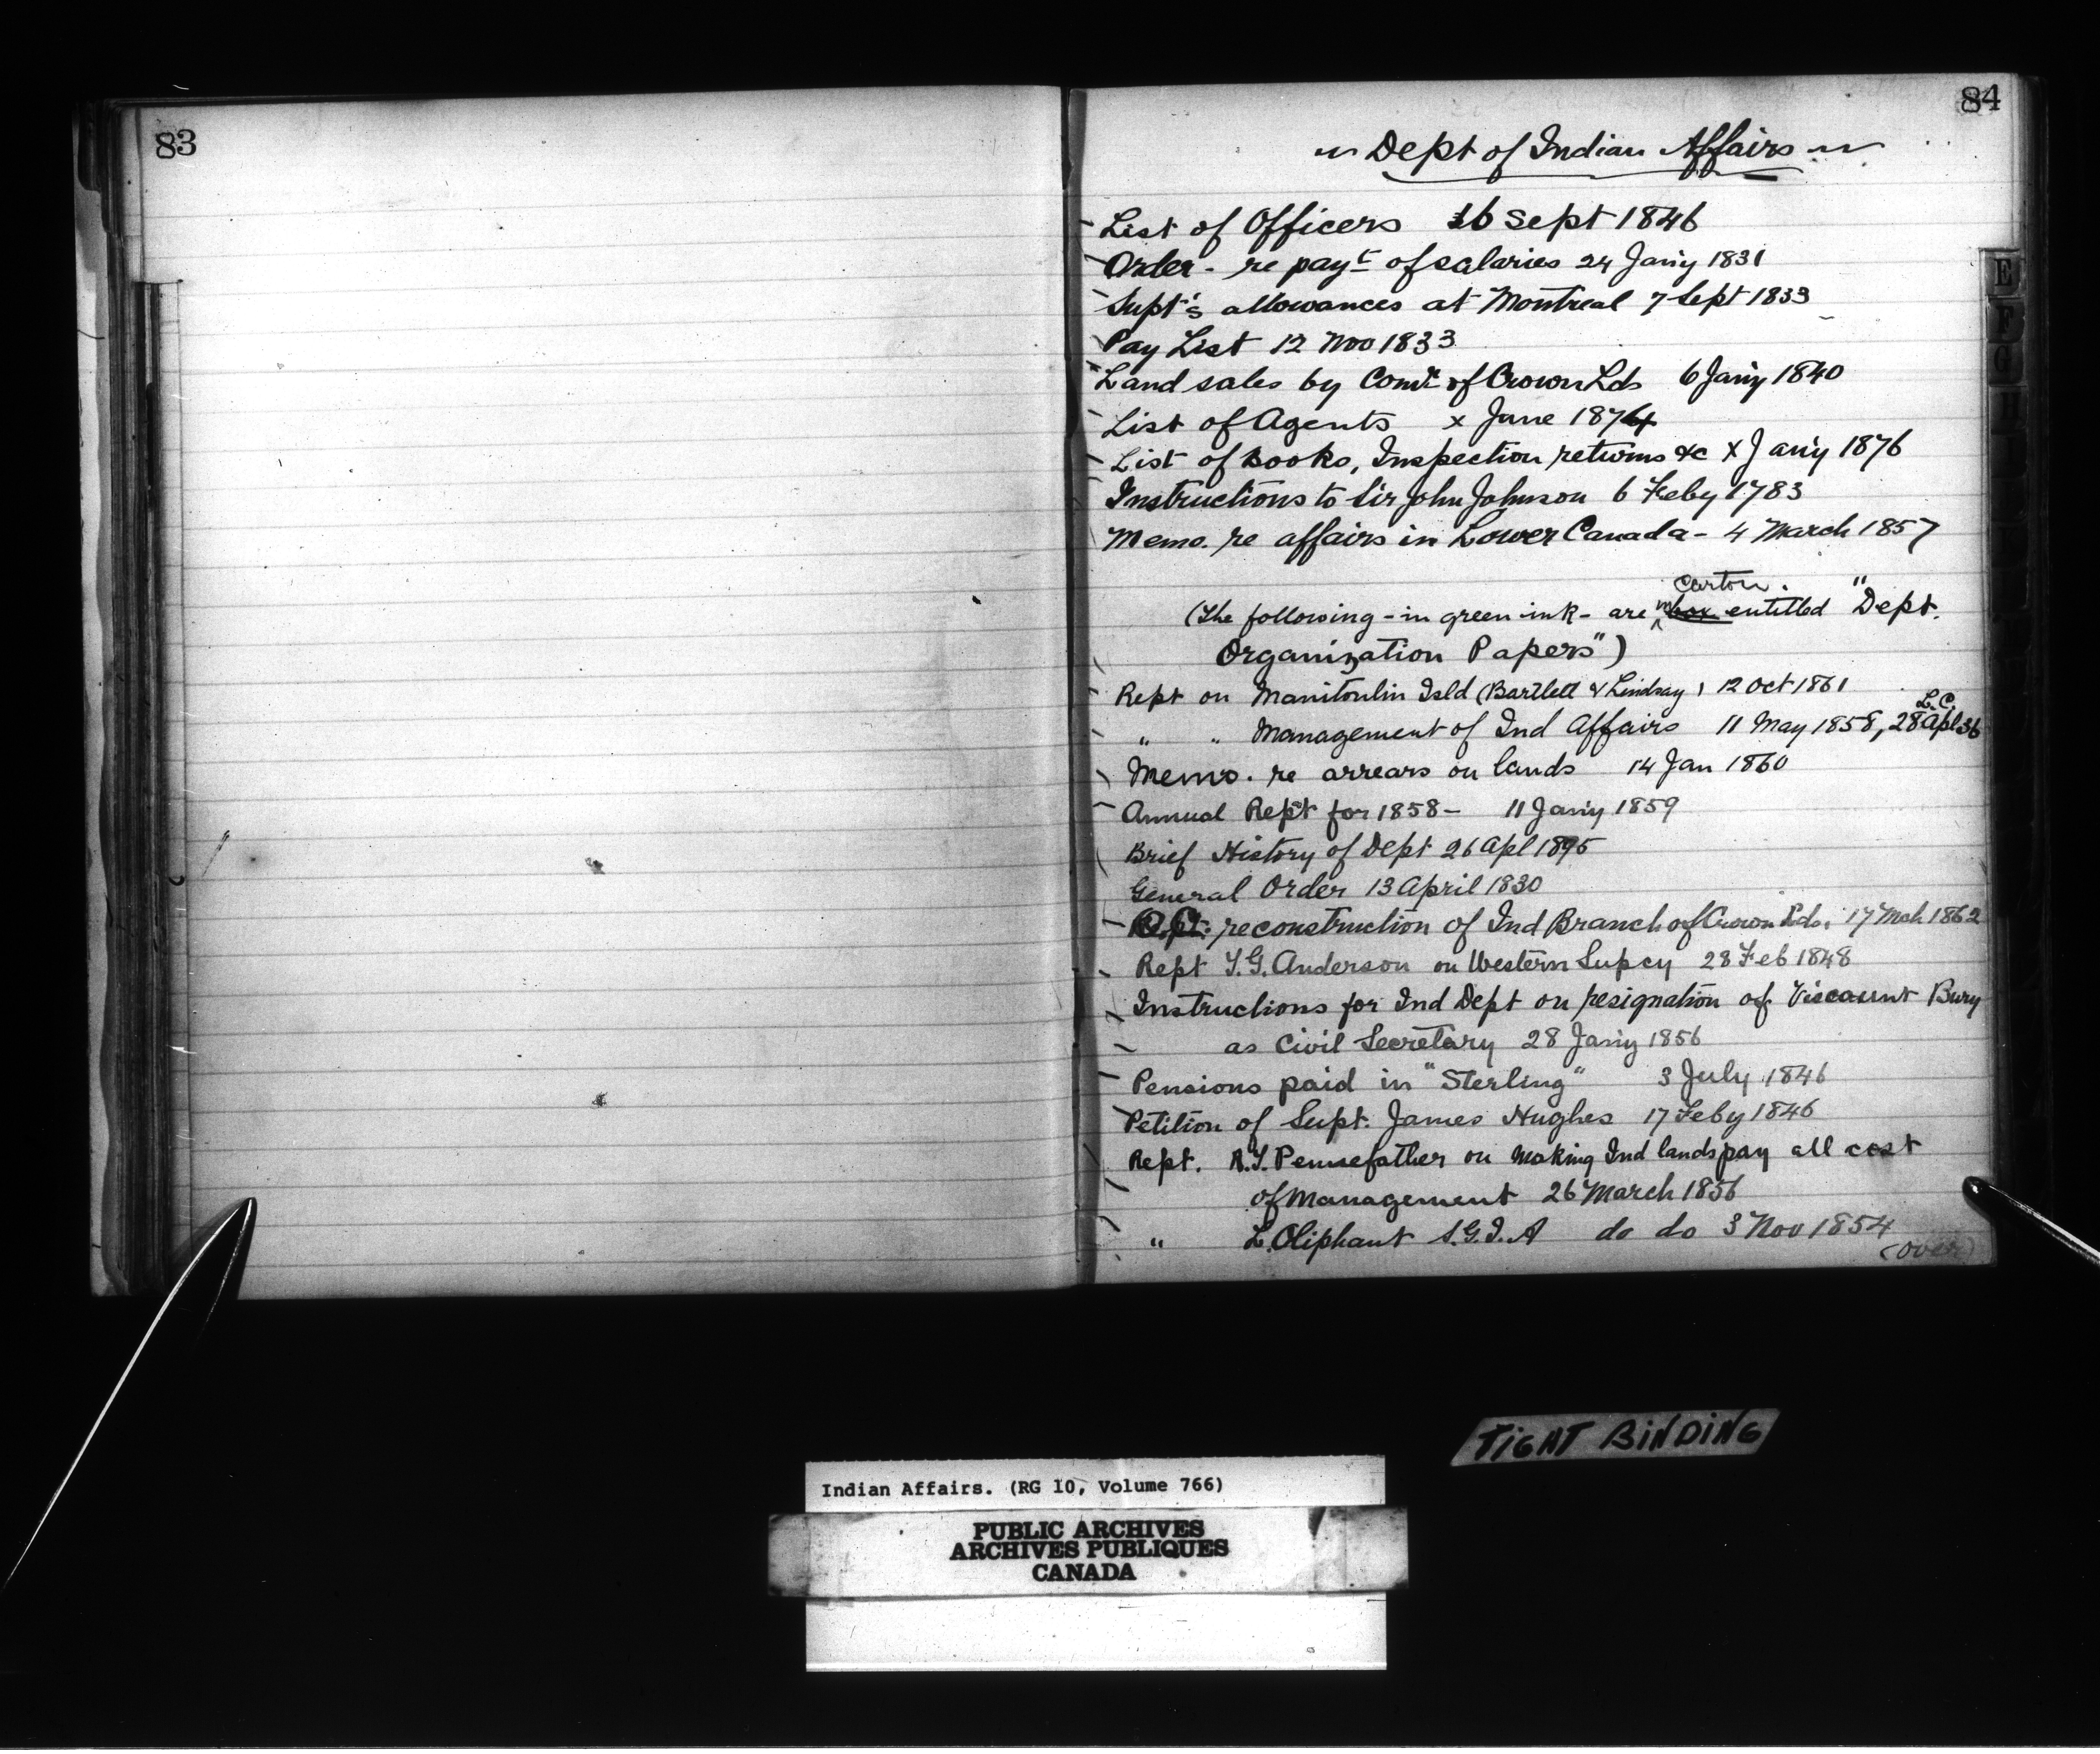 83
84
Dept of Indian Affairs
List of Officers 16 Sept 1846
Order - re payt of salaries 24 Jany 1831
Supt's allowances at Montreal 7 Sept 1833
Pay List 12 Nov 1833
Land sales by Comr of Crown Lds 6 Jany 1840
List of Agents x June 1874
List of Books, Inspection returns &c x Jany 1876
Instructions to Sir John Johnson 6 Feby 1783
Memo. re affairs in Lower Canada - 4 March 1857
Carton.
(The following - in green ink - are in box entitled "Dept.
Organization Papers")
Rept on Manitoulin Isld (Bartlett & Lindsay) 12 Oct 1861
L.C.
" " Management of Ind Affairs 11 May 1858, 28 Apl 36
Memo. re arrears on lands 14 Jan 1860
Annual Rept for 1858 - 11 Jany 1859
Brief History of Dept 26 Apl 1895
General Order 13 April 1830
O.C. reconstruction of Ind Branch of Crown Lds. 17 Mch 1862
Rept T.G. Anderson on Western Supcy 28 Feb 1848
Instructions for Ind Dept on resignation of Viscount Bury
as Civil Secretary 28 Jany 1856
Pensions paid in "Sterling" 3 July 1846
Petition of Supt. James Hughes 17 Feby 1846
Rept. R.T. Pennefather on making Ind lands pay all cost
of management 26 March 1856
" L. Oliphant S.G.I.A do do 3 Nov 1854
(over)
E
F
G
H
TIGHT BINDING
Indian Affairs. (RG 10, Volume 766)
PUBLIC ARCHIVES
ARCHIVES PUBLIQUES
CANADA